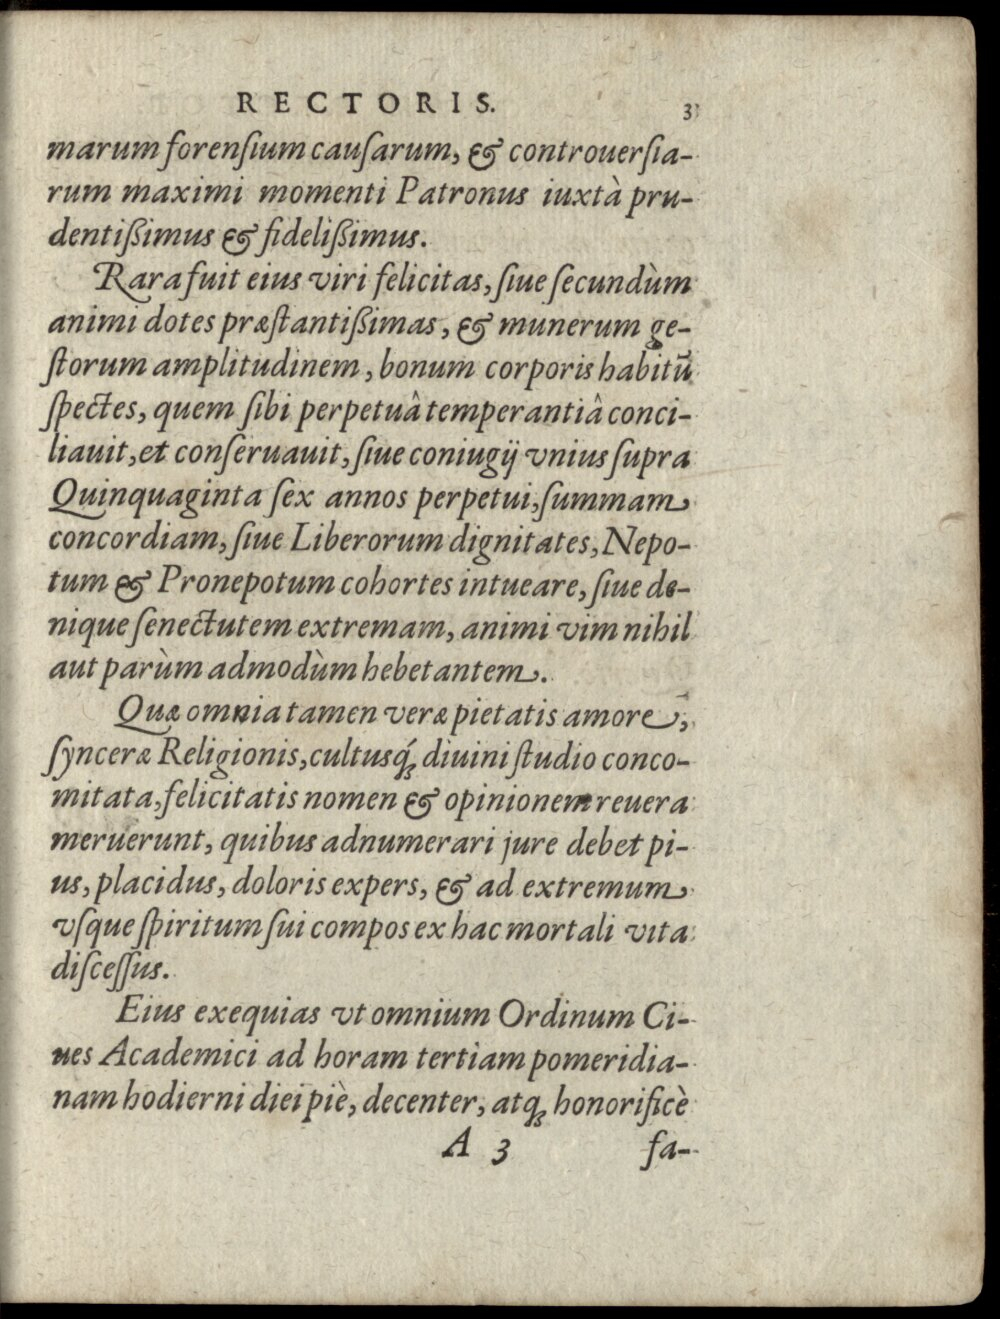 RECTORIS. 3
marum forenſium cauſarum, & controuerſia-
rum maximi momenti Patronus iuxtà pru-
dentißimus & fideliſßimus.
Rara fuit eius viri felicitas, ſiue ſecundùm
animi dotes præſtantißimas, & munerum ge-
ſtorum amplitudinem, bonum corporis habitū
ſpectes, quem ſibi perpetuâ temperantiâ conci-
liauit, et conſeruauit, ſiue coniugij vnius ſupra
Quinquaginta ſex annos perpetui, ſummam
concordiam, ſiue Liberorum dignitates, Nepo-
tum & Pronepotum cohortes intueare, ſiue de-
nique ſenectutem extremam, animi vim nihil
aut parùm admodùm hebetantem.
Quæ omnia tamen veræ pietatis amore,
ſynceræ Religionis, cultusq́; diuini ſtudio conco-
mitata, felicitatis nomen & opinionem reuera
meruerunt, quibus adnumerari jure debet pi-
us, placidus, doloris expers, & ad extremum
vſque ſpiritum ſui compos ex hac mortali vita
diſceſſus.
Eius exequias vt omnium Ordinum Ci-
ues Academici ad horam tertiam pomeridia-
nam hodierni diei piè, decenter, atq; honorificè
A 3 fa-